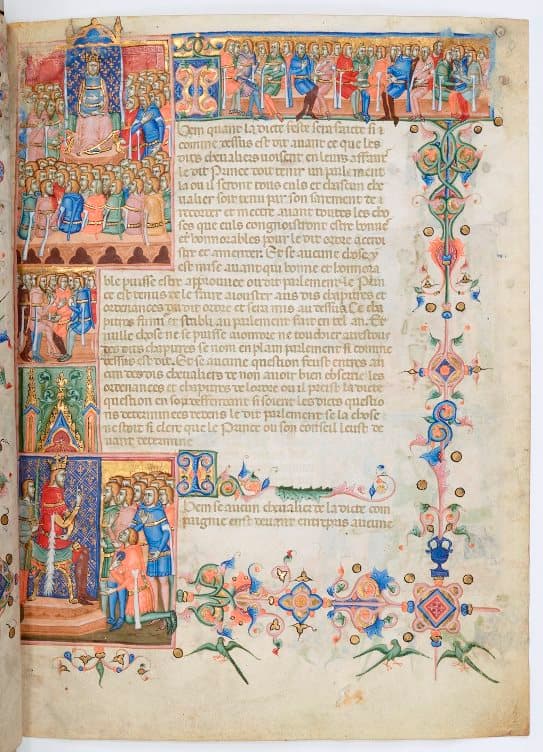 Item quant la dicte feste sera faicte si
comme dessus est dit avant ce que les
dits chevaliers voisent en leurs affaires
le dit Prince doit tenir un parlement
la ou il seront tous euls et chascun che
valier soit tenu par son sairement de
recorder et mectre avant toutes les cho
ses que euls congnoistront estre bonne
et honnorables pour le dit ordre acroi
stre et amender. Et se aucune chose y
est mise avant qui bonne et honnora
ble puisse estre approuvee ou dit parlement le Prin
ce est tenus de le faire aiouster aus dis chapitres et
ordenances du dit ordre et sera mis au dessus. Ce cha
pitres furent establi au parlement fait en tel an. Et
nulle chose ne se puisse aiouter ne touchier as
des dis chapitres se non en plain parlement si comme
dessus est dit. Et se aucune question feust entre au
cun des dis chevaliers de non avoir bien observe les
ordenances et chapitres de lordre ou il preist la dicte
question en soy reffrenant si soient les dictes questio
ns determinees dedens le dit parlement se la chose
ne estoit si clere que le Prince ou son conseil leust de
vant determine
Item se aucun chevalier de la dicte com
paignie enst devant entrepris aucune